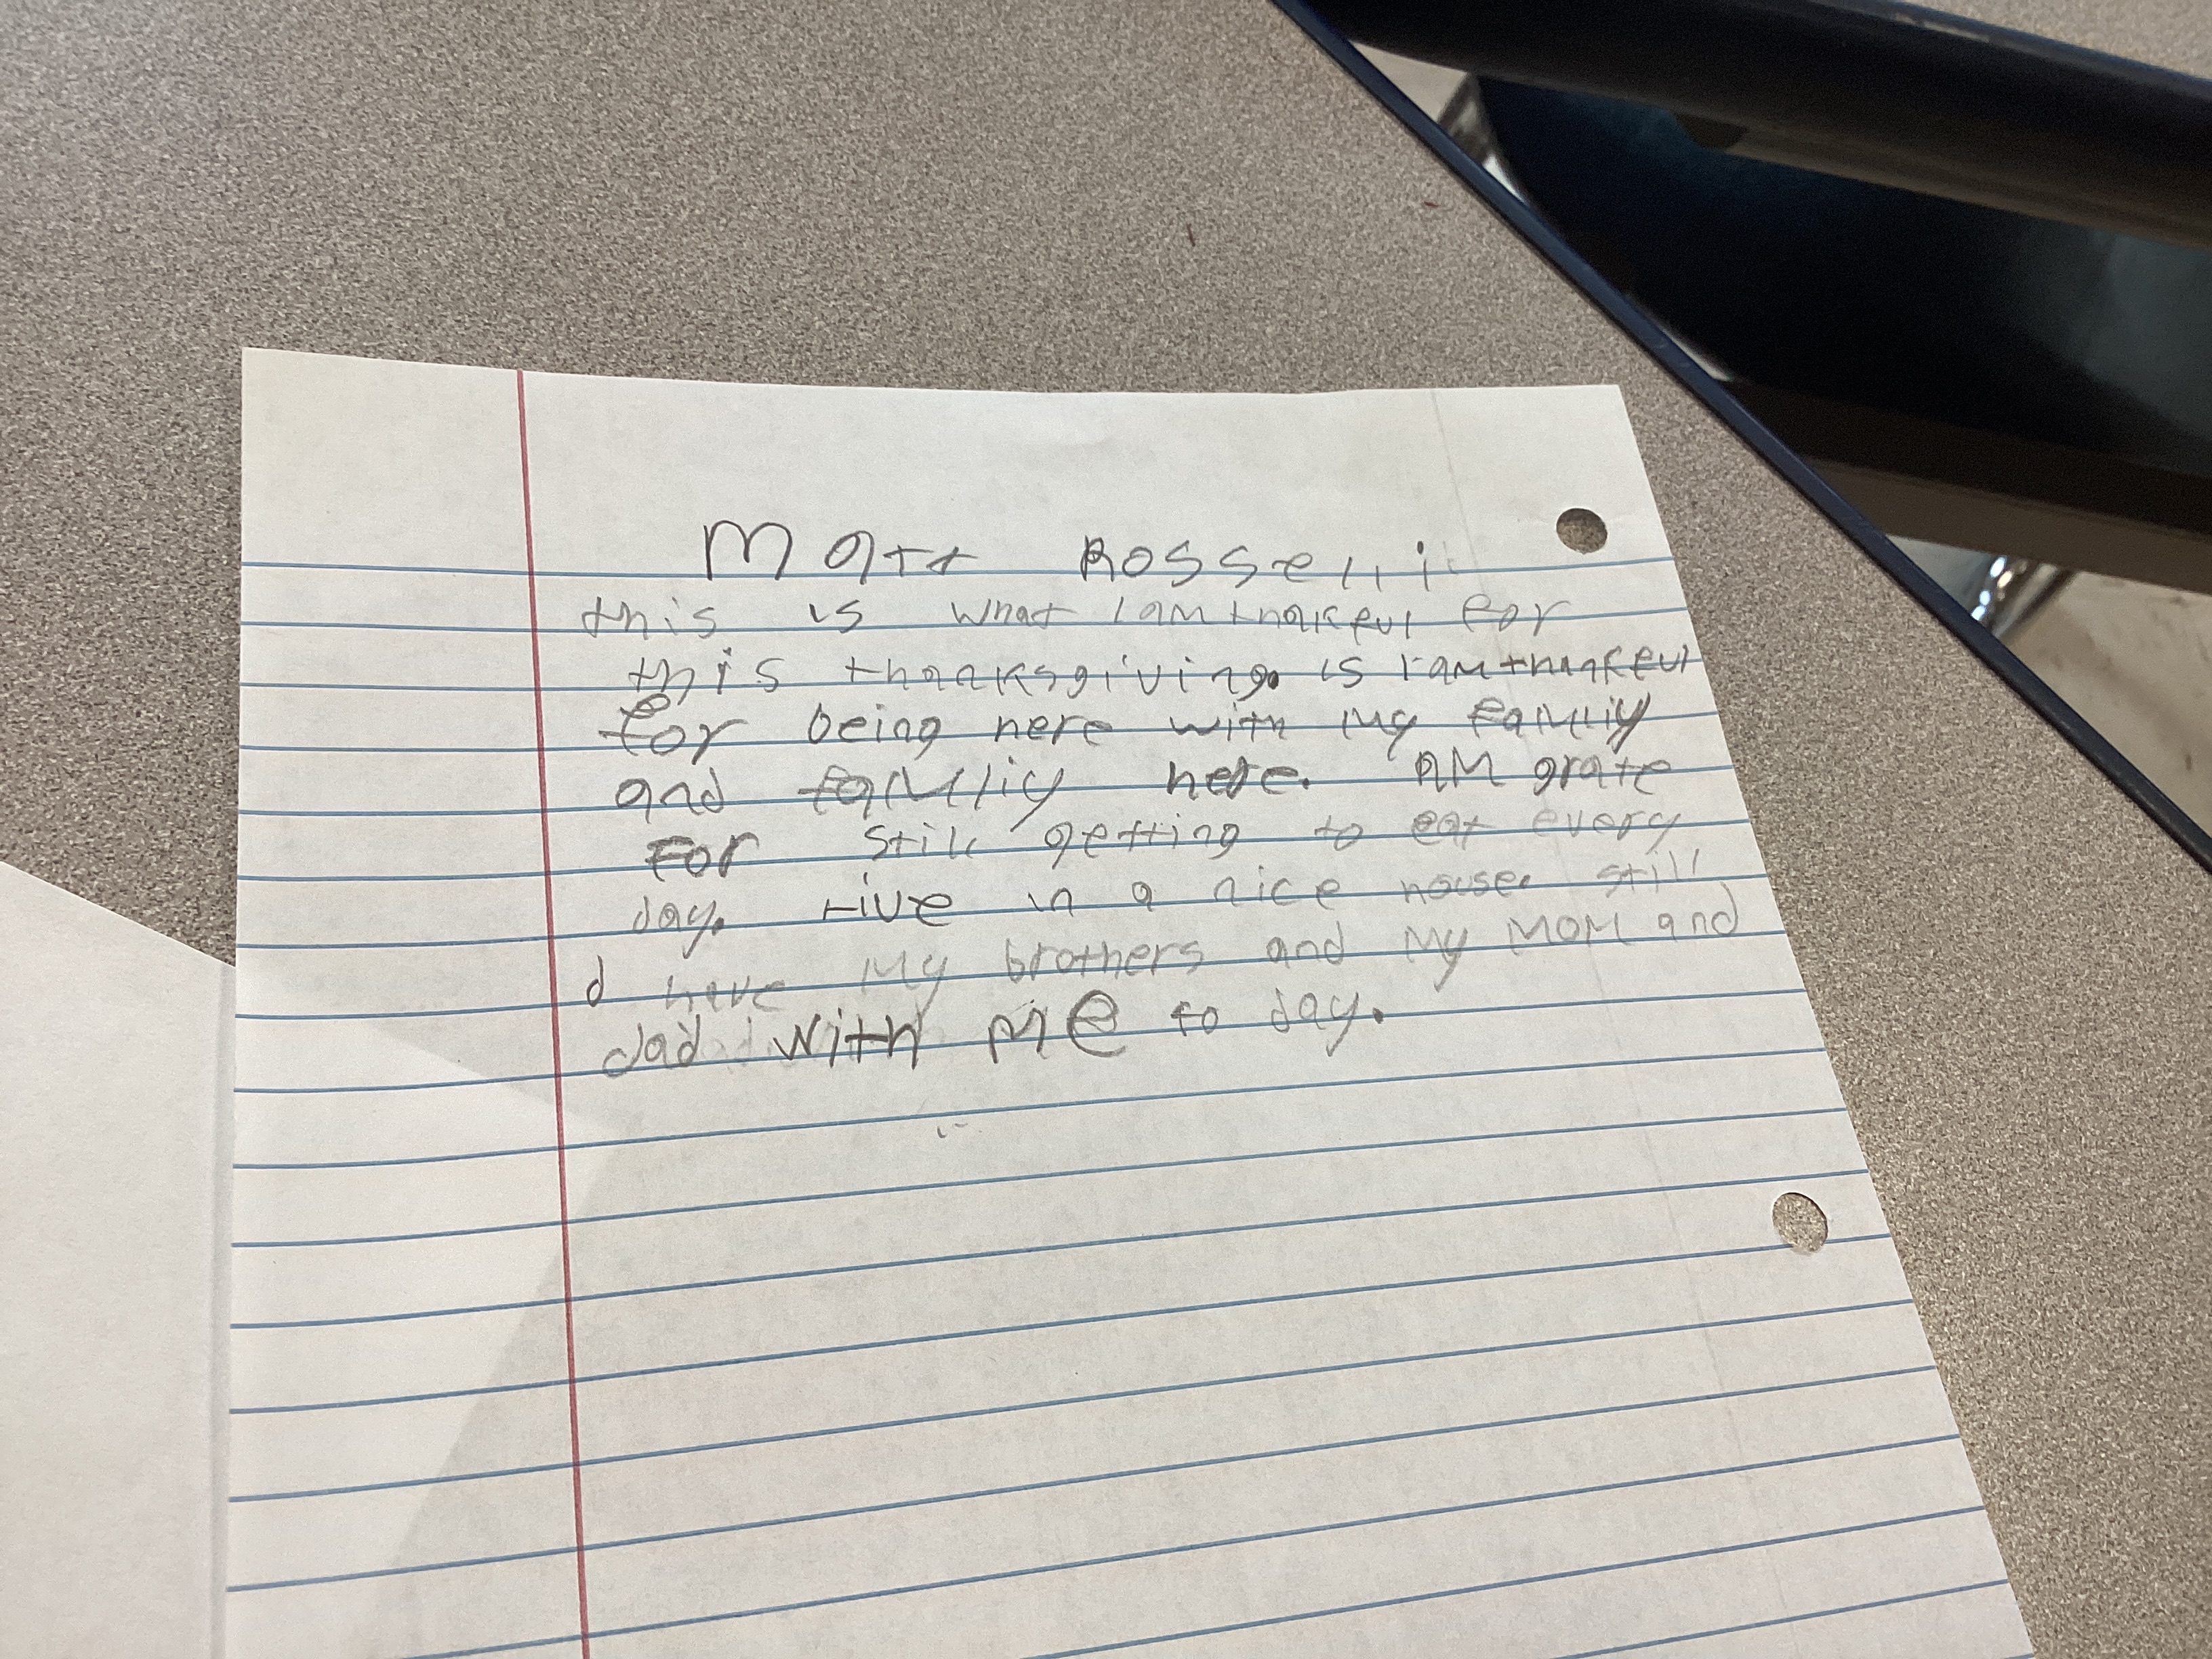 Matt Rosselli
this is what I am thakful for
this thanksgiving. is I am thankful
for being here with my family
and famliy here. AM grate
For still getting to eat every
day. Live in a nice house. still
d have My brothers and My MOM and
dad with me to day.